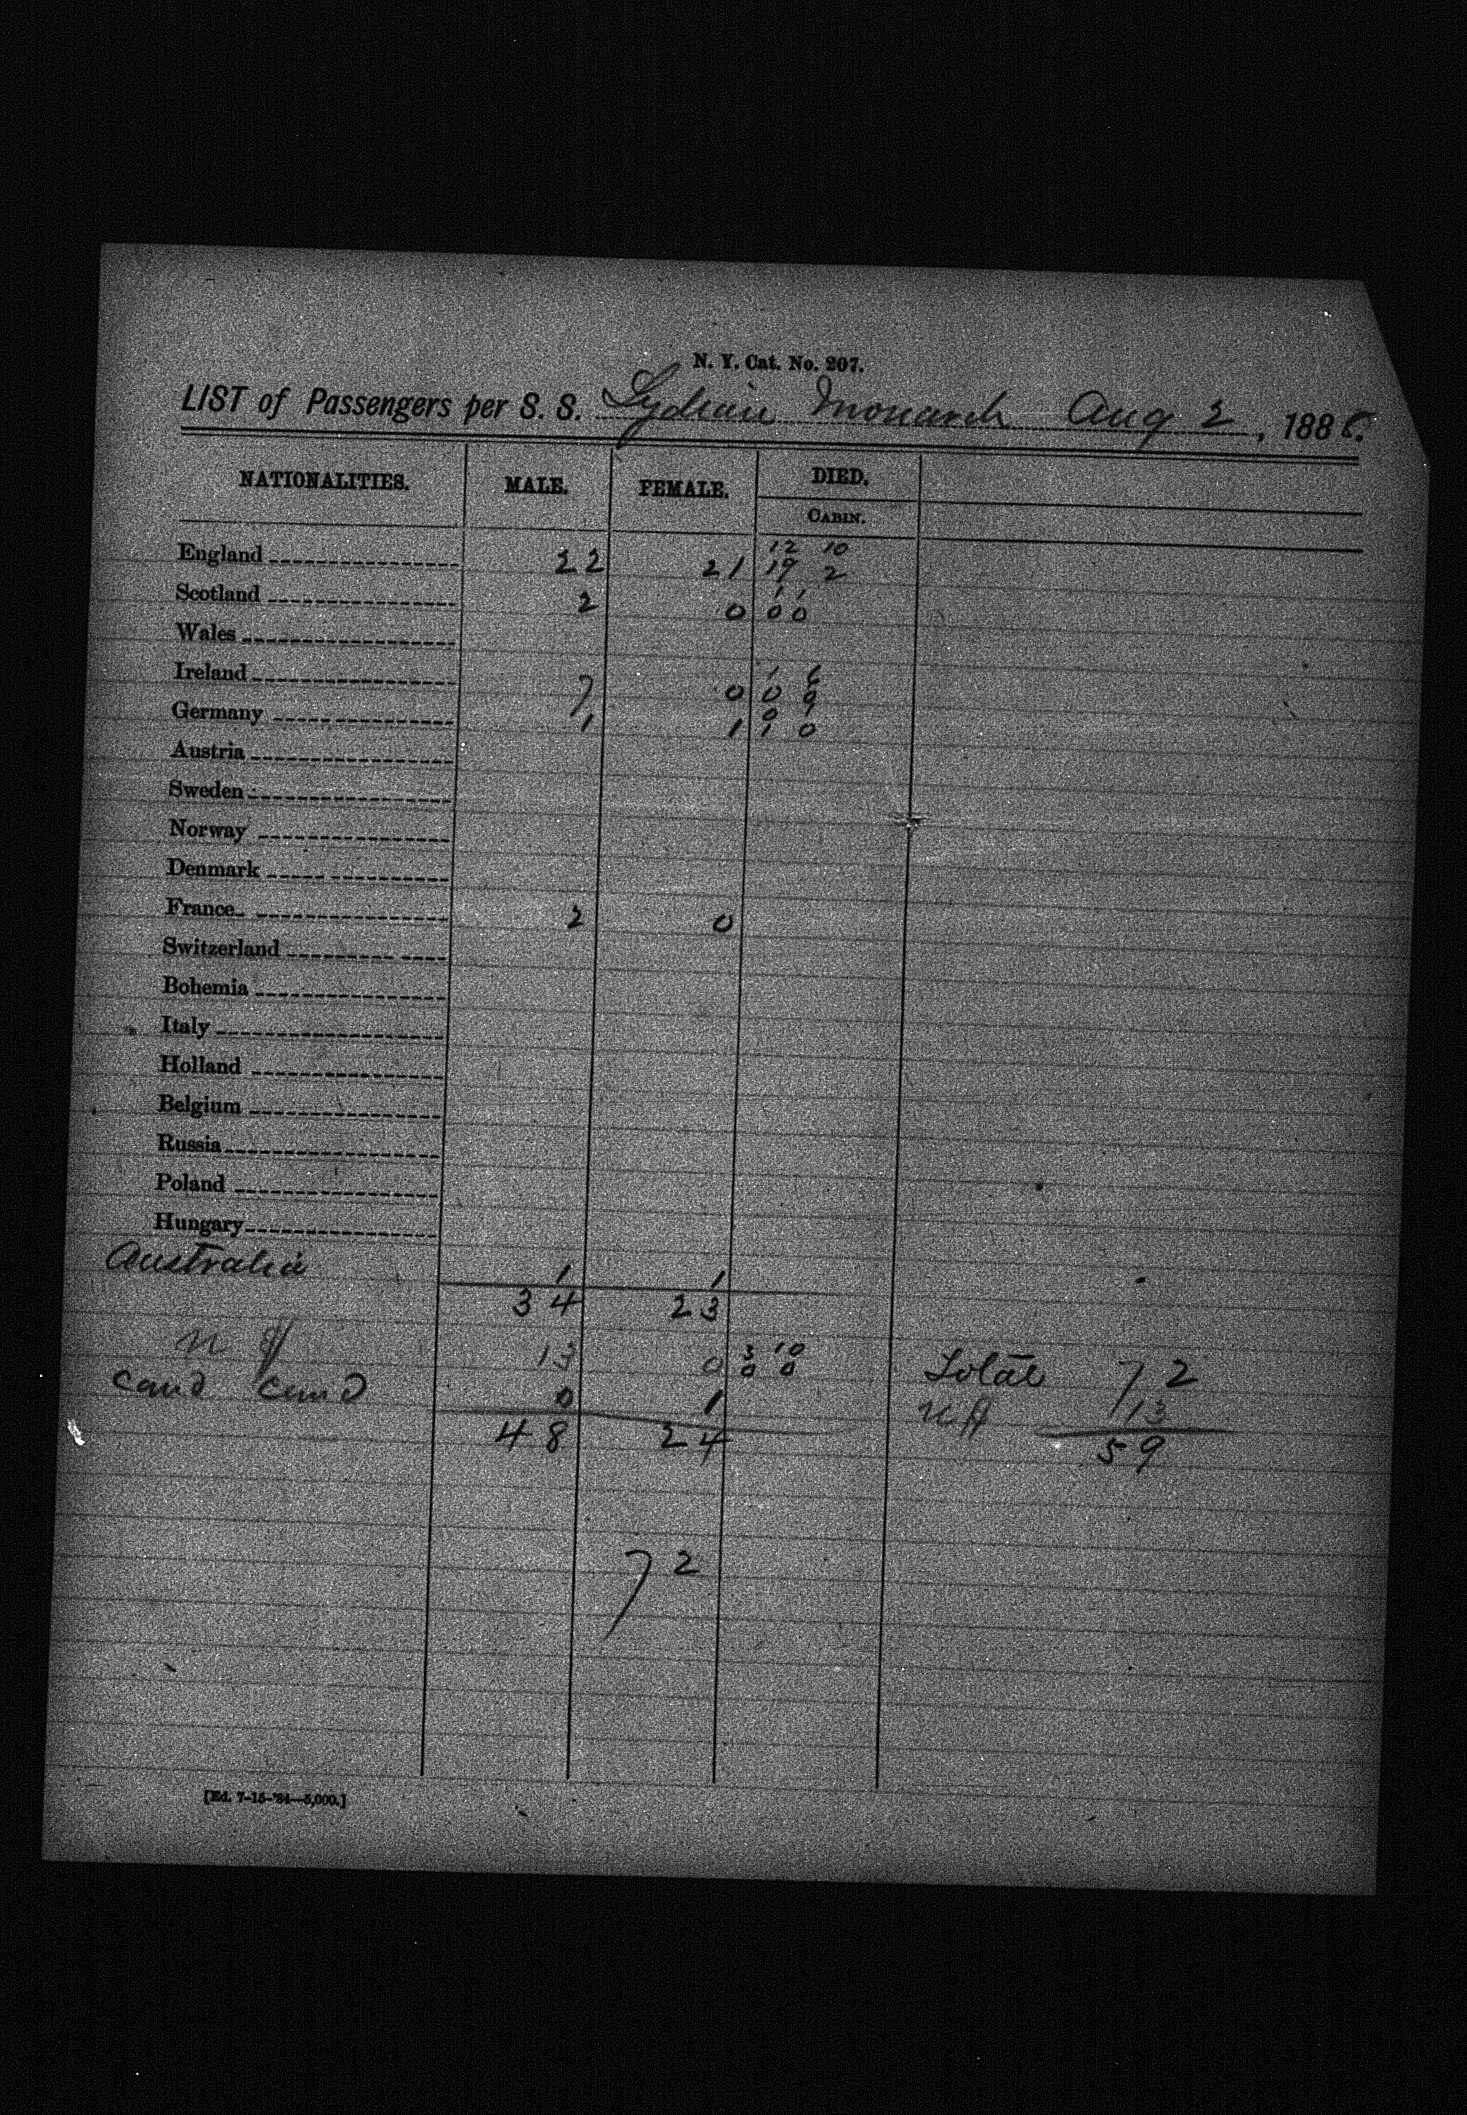 N. Y. Cat. No. 207.
LIST of Passengers per S. S. Lydian Monarch Aug 2, 188
NATIONALITIES. MALE. FEMALE. DIED.
CABIN.
12 10
England 22 21 19 2
1 1
Scotland 2 0 0 0
Wales
1 6
Ireland 7 0 0 0
0 1
Germany 1 1 1 0
Austria
Sweden
Norway
Denmark
France 2 0
Switzerland
Bohemia
Italy
Holland
Belgium
Russia
Poland
Hungary
Australia 1 1
34 23
3 10
13 0 0 0 Total 72
0 1 13
48 24 59
72
[Ed. 7-15-'84—5,000.]